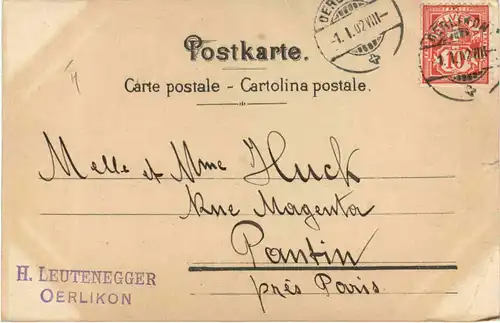 OERLIKON
-1.I.02.VIII-
OERLIKON
-1.I.02.VIII-
10
Postkarte.
Carte postale - Cartolina postale.
Melle et Mme Huck
Rue Magenta
Pantin
près Paris
H. LEUTENEGGER
OERLIKON